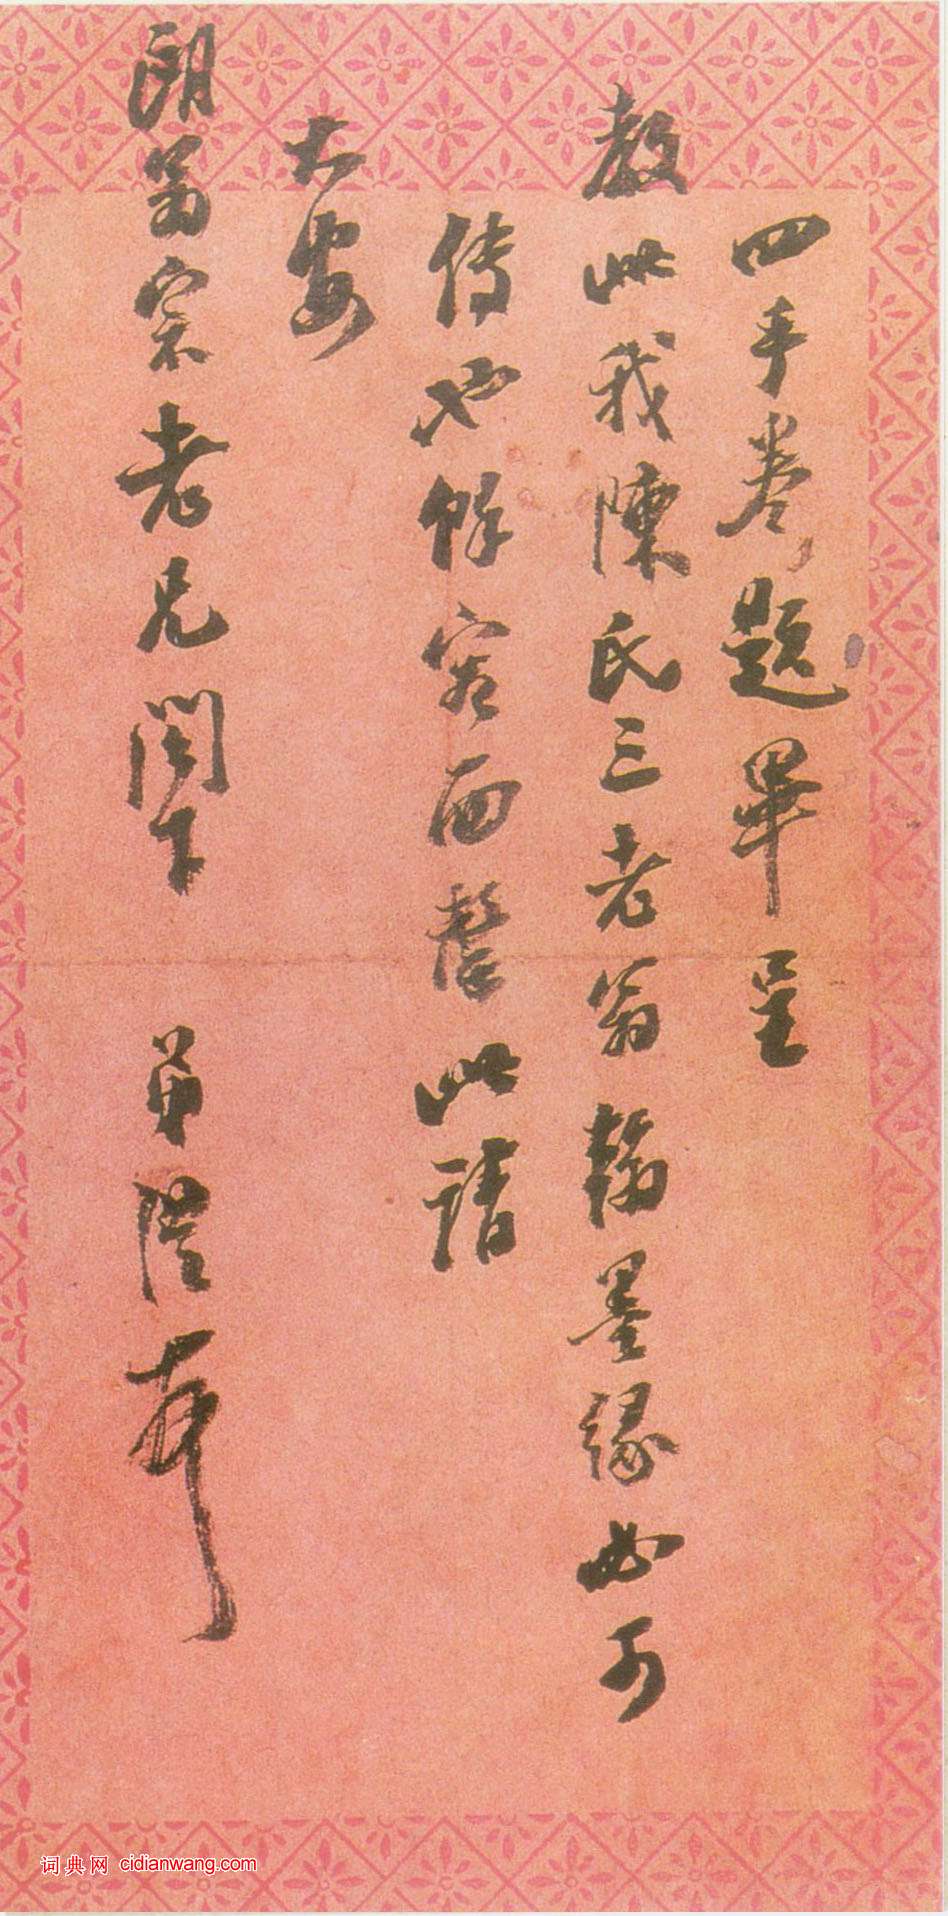 四手卷題畢呈
教此我陳氏三老翁翰墨緣必可
傳也餘容面罄此請
大安
朗翁宗老兄閣下 弟澧頓首
词典网 cidianwang.com